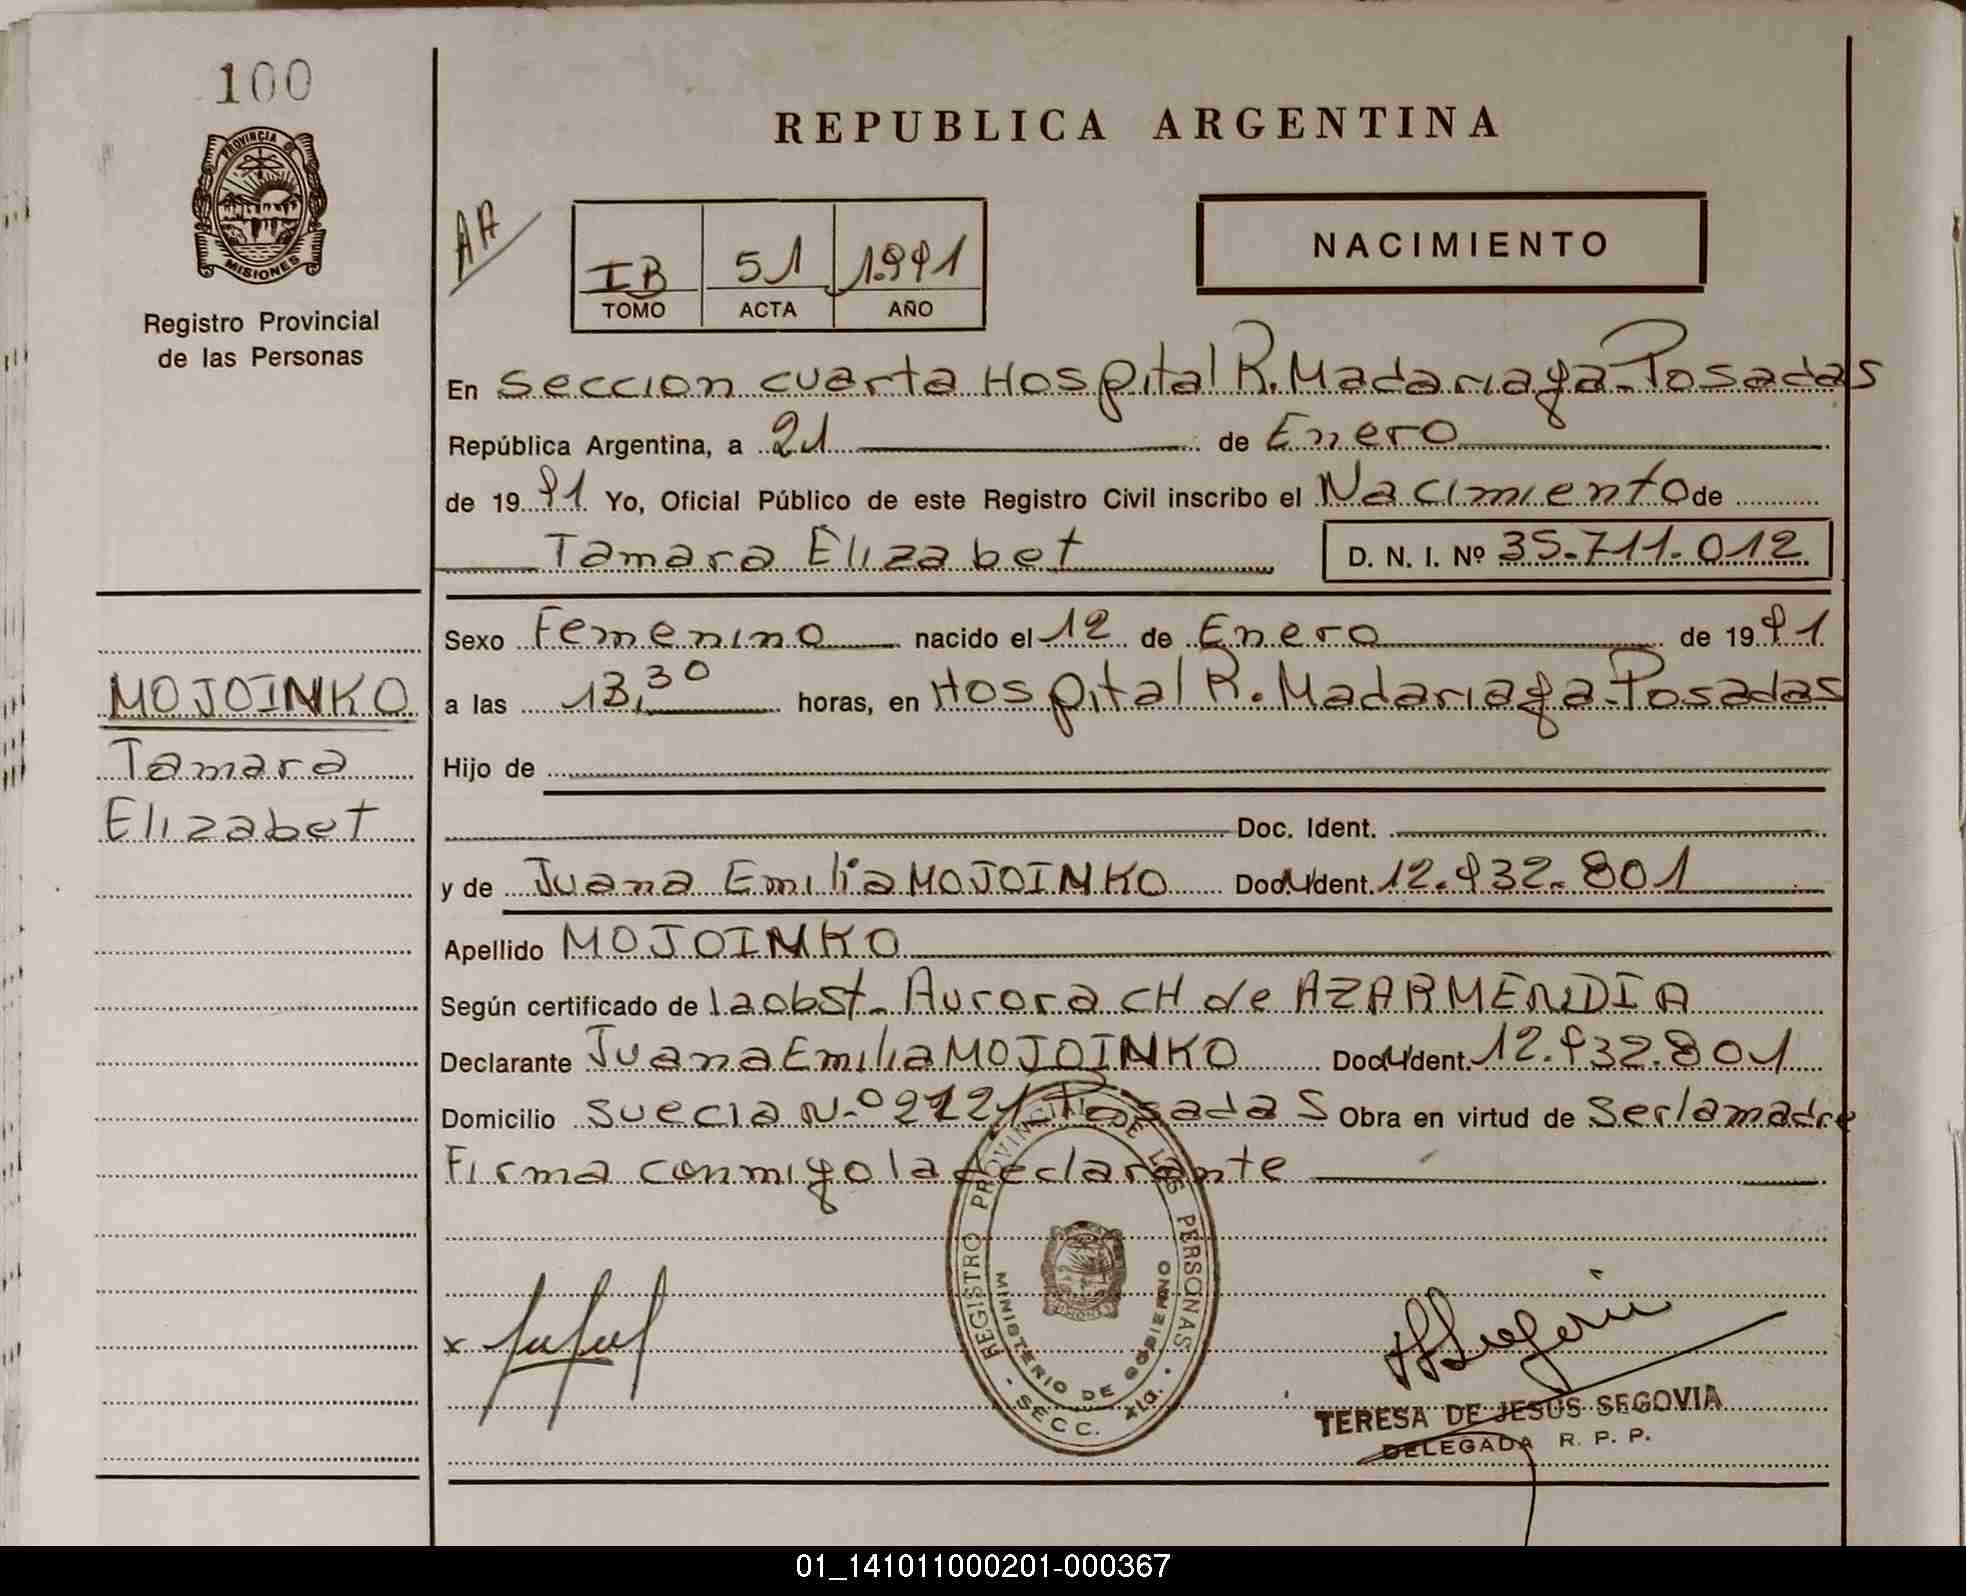 100
PROVINCIA D
MISIONES
Registro Provincial
de las Personas
REPUBLICA ARGENTINA
AA
IB 51 1.991
TOMO ACTA AÑO
NACIMIENTO
En seccion cuarta Hospital R. Madariaga-Posadas
República Argentina, a 21 de Enero
de 1991 Yo, Oficial Público de este Registro Civil inscribo el Nacimiento de
Tamara Elizabet D. N. I. Nº 35.711.012
Sexo Femenino nacido el 12 de Enero de 1991
MOJOINKO
a las 13,30 horas, en Hospital R. Madariaga-Posadas
Tamara
Hijo de
Elizabet
Doc. Ident.
y de Juana Emilia MOJOINKO Doc. Ident. 12.932.801
Apellido MOJOINKO
Según certificado de la obst. Aurora CH de AZARMENDIA
Declarante Juana Emilia MOJOINKO Doc. Ident. 12.932.801
Domicilio suecia N.º 2721 Posadas Obra en virtud de ser la madre
Firma conmigo la declarante
REGISTRO PROVINCIAL DE LAS PERSONAS
MINISTERIO DE GOBIERNO
SECC. 4ta.
x
TERESA DE JESUS SEGOVIA
DELEGADA R. P. P.
01_141011000201-000367